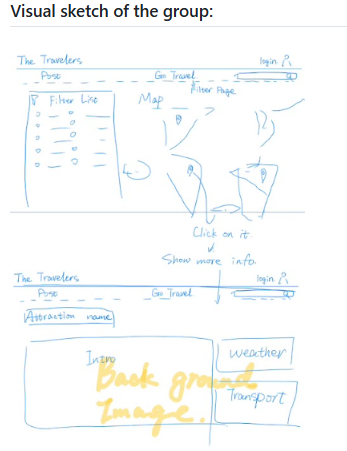 Visual sketch of the group:
The Travelers login
Post Go Travel
Filter Page
Filter List Map
Click on it
Show more info.
The Travelers login
Post Go Travel
Attraction name
Intro weather
Back ground
Image.
Transport